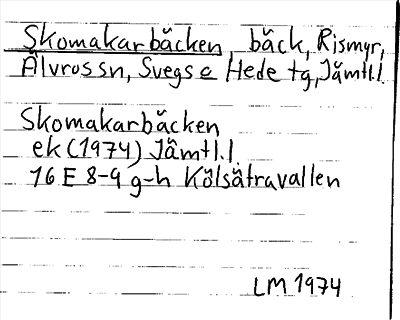 Skomakarbäcken, bäck, Rismyr,
Älvros sn, Svegs o Hede tg, Jämtl.l.
Skomakarbäcken
ek (1974) Jämtl.l.
16 E 8-9 g-h Kölsätravallen
LM 1974